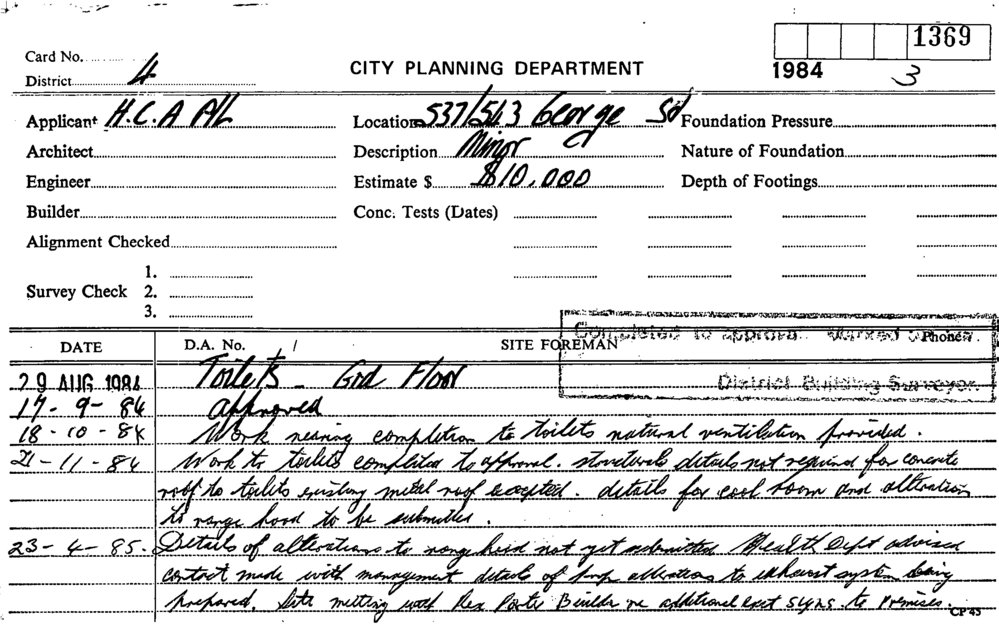 1369
Card No.
District 4
CITY PLANNING DEPARTMENT
1984 3
Applicant H.C.A P/L
Location 537/543 George St
Foundation Pressure
Architect
Description Minor
Nature of Foundation
Engineer
Estimate $ $10,000
Depth of Footings
Builder
Conc. Tests (Dates)
Alignment Checked
Survey Check 1.
2.
3.
Completed to approval
District Building Surveyor.
DATE D.A. No. SITE FOREMAN Phone
29 AUG 1984 Toilets - Grd Floor
17-9-84 Approved
18-10-84 Work nearing completion to toilets natural ventilation provided.
21-11-84 Work to toilets completed to approval. structural details not required for concrete
roof to toilets existing metal roof accepted. details for cool room and alteration
to range hood to be submitted.
23-4-85. Details of alterations to range hood not yet submitted Health Dept advised
contact made with management details of alterations to exhaust system being
prepared. Site meeting with Rex Porter Builder re additional exit signs to Premises.
CP 45